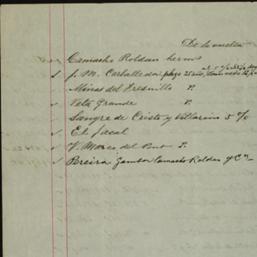 De la vuelta
Camacho Roldan herms
J. M. Carballeda, plazo 25 año,
Minas del Fresnillo P.
Veta Grande P.
Sangre de Cristo y Villarino 5 %
El Jacal
V. Marco del Pont P.
Pereira Gamba Camacho Roldan y Ca